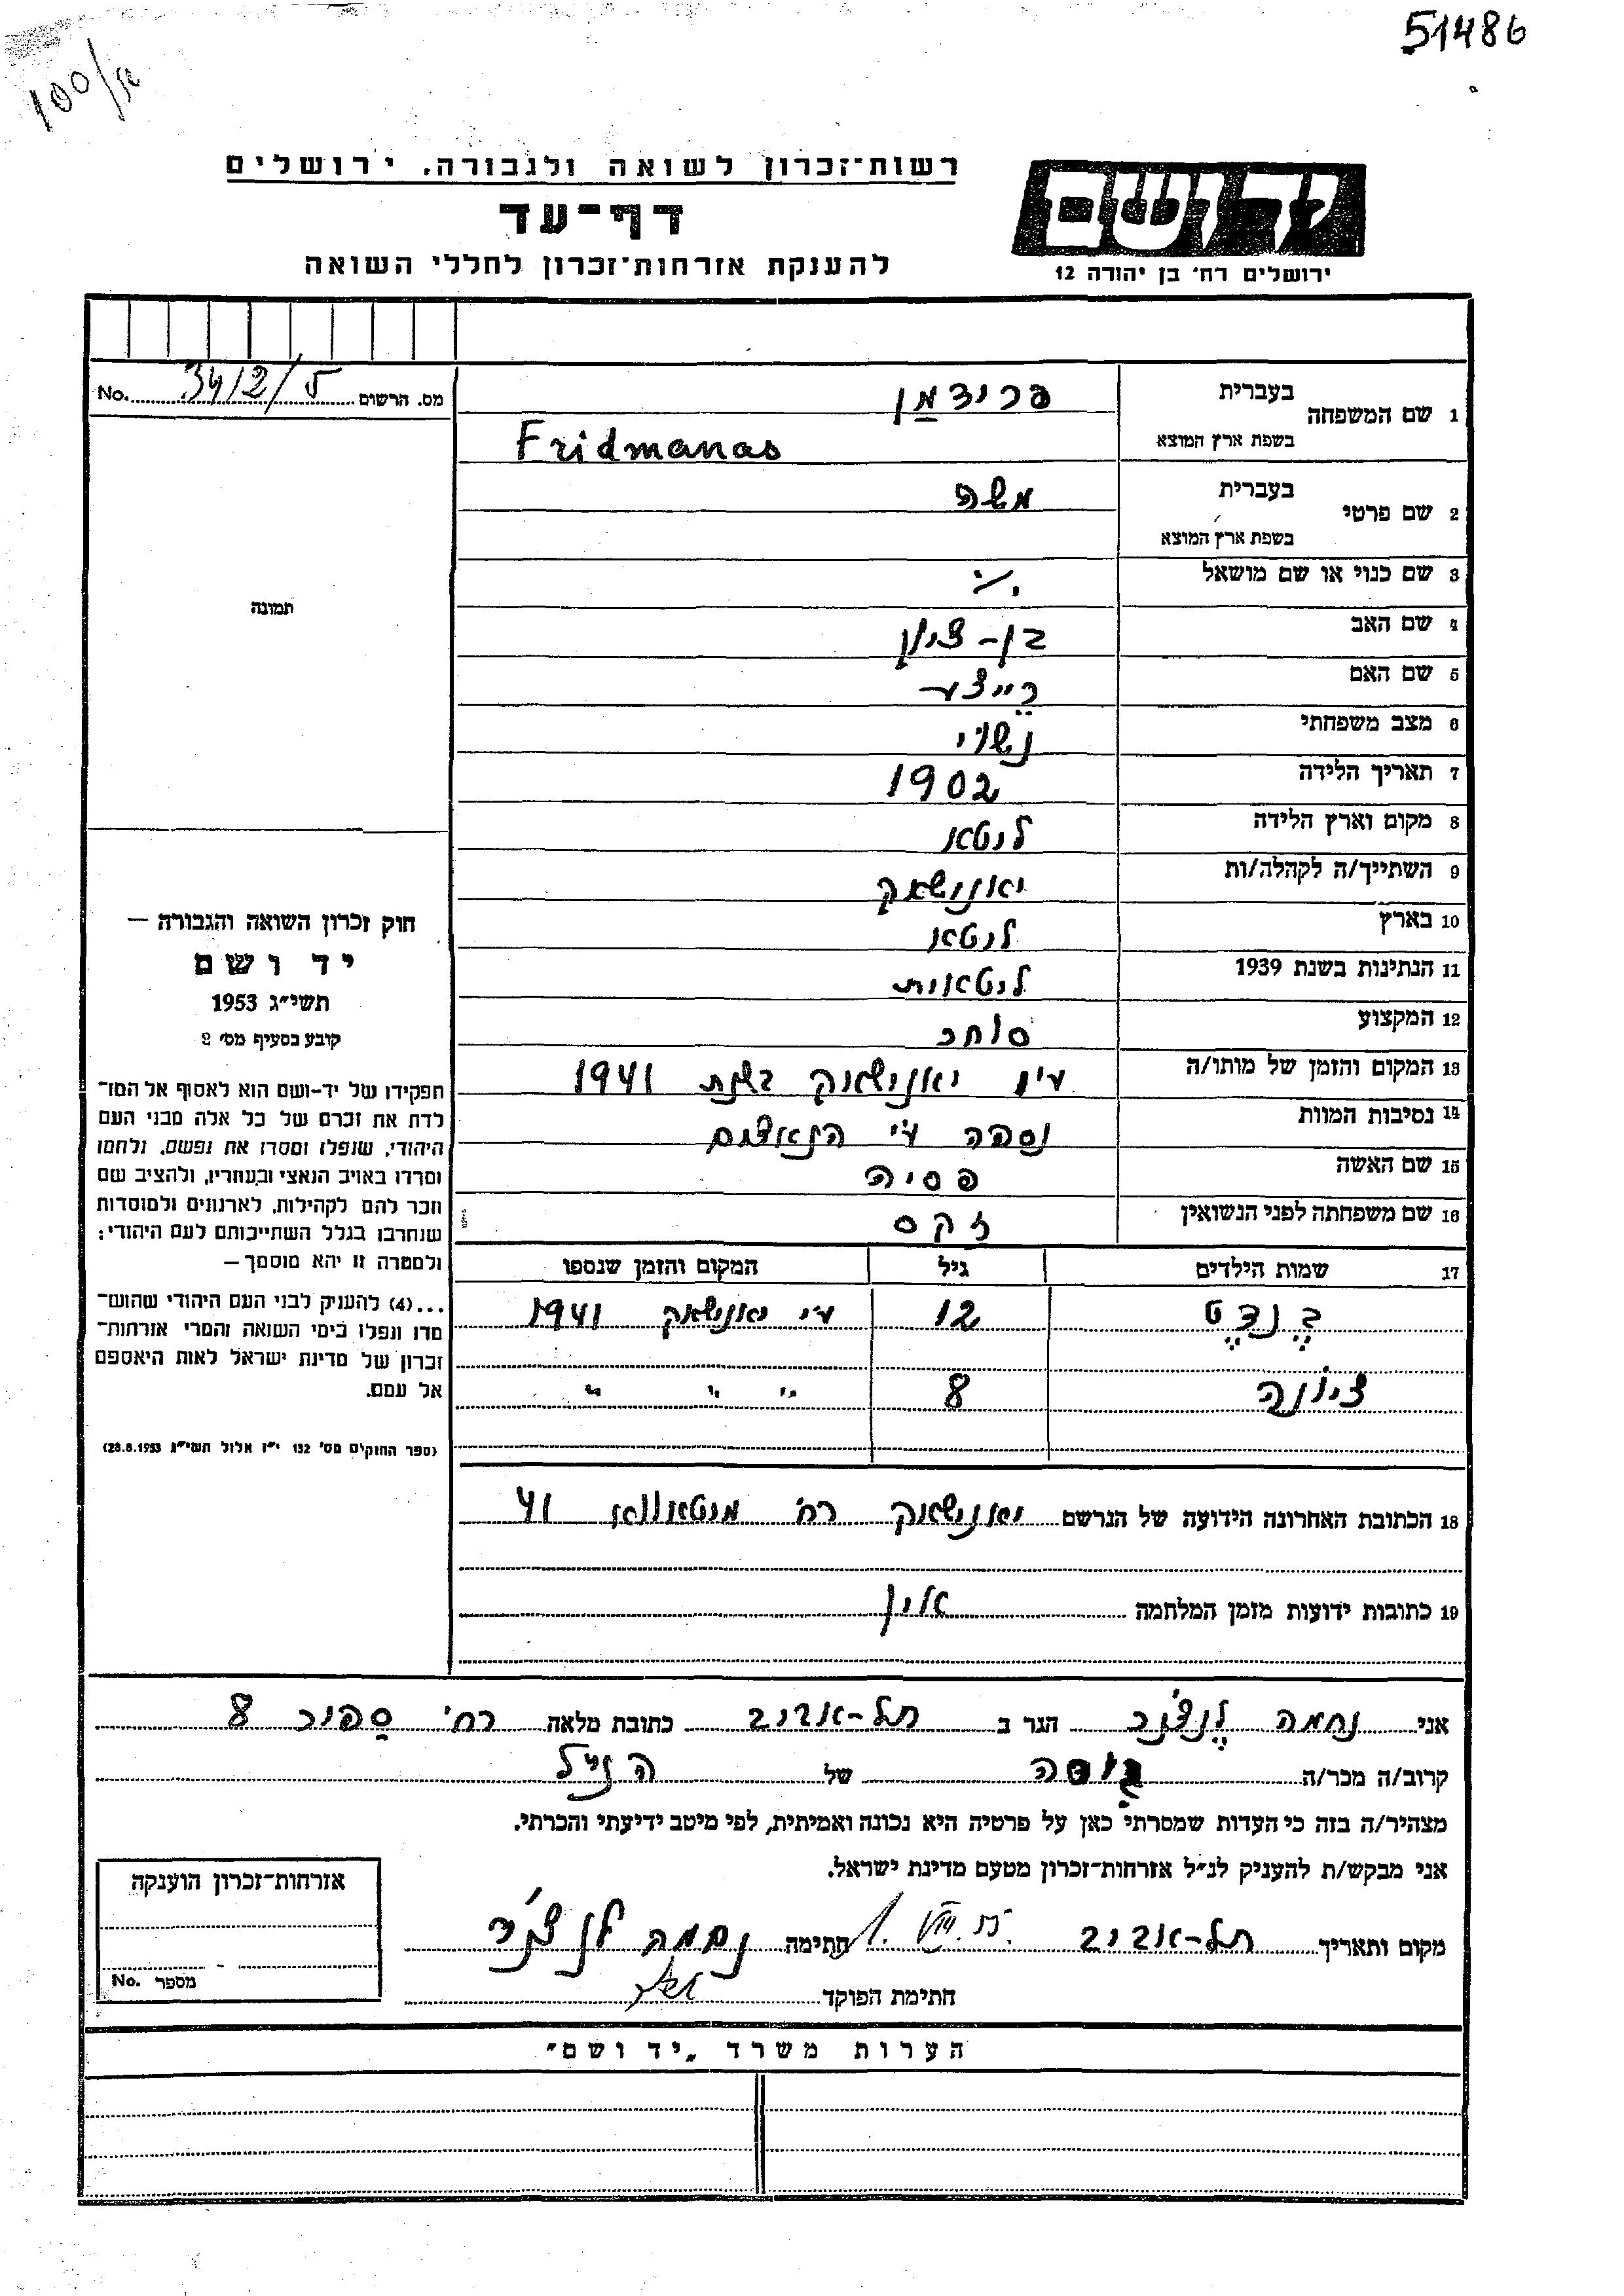 51486
100/א
רשות־זכרון לשואה ולגבורה, ירושלים
דף־עד
להענקת אזרחות־זכרון לחללי השואה
יד ושם
ירושלים רח׳ בן יהודה 12
מס. הרשום No.
1 שם המשפחה בעברית פרידמן
בשפת ארץ המוצא Fridmanas
2 שם פרטי בעברית משה
בשפת ארץ המוצא
3 שם כנוי או שם מושאל ./.
4 שם האב בן-ציון
5 שם האם רייצע
6 מצב משפחתי נשוי
7 תאריך הלידה 1902
8 מקום וארץ הלידה ליטא
9 השתייך/ה לקהלה/ות יאנישאק
10 בארץ ליטא
11 הנתינות בשנת 1939 ליטאית
12 המקצוע סוחר
13 המקום והזמן של מותו/ה ע״י יאנישאק בשנת 1941
14 נסיבות המוות נספה ע״י הנאצים
15 שם האשה פסיה
16 שם משפחתה לפני הנשואין זקס
17 שמות הילדים גיל המקום והזמן שנספו
בנדט 12 ע״י יאנישאק 1941
ציונה 8 " " " "
18 הכתובת האחרונה הידועה של הנרשם יאנישאק רח׳ 41
19 כתובות ידועות מזמן המלחמה אין
תמונה
חוק זכרון השואה והגבורה —
יד ושם
תשי״ג 1953
קובע בסעיף מס׳ 2
תפקידו של יד־ושם הוא לאסוף אל המו־
לדת את זכרם של כל אלה מבני העם
היהודי, שנפלו ומסרו את נפשם, נלחמו
ומרדו באויב הנאצי ובעוזריו, ולהציב שם
וזכר להם לקהילות, לארגונים ולמוסדות
שנחרבו בגלל השתייכותם לעם היהודי;
ולמטרה זו יהא מוסמך —
...(4) להעניק לבני העם היהודי שהושמ־
דו ונפלו בימי השואה והמרי אזרחות־
זכרון של מדינת ישראל לאות היאספם
אל עמם.
(ספר החוקים מס׳ 132 י״ז אלול תשי״ג 28.8.1953)
אני נחמה לנצנר הגר ב תל-אביב כתובת מלאה רח׳ ספיר 8
קרוב/ה מכר/ה גיסה של הנ״ל
מצהיר/ה בזה כי העדות שמסרתי כאן על פרטיה היא נכונה ואמיתית, לפי מיטב ידיעתי והכרתי.
אני מבקש/ת להעניק לנ״ל אזרחות־זכרון מטעם מדינת ישראל.
מקום ותאריך תל-אביב 1.VIII.55 חתימה נחמה לנצנר
חתימת הפוקד
אזרחות־זכרון הוענקה
מספר No.
הערות משרד „יד ושם״